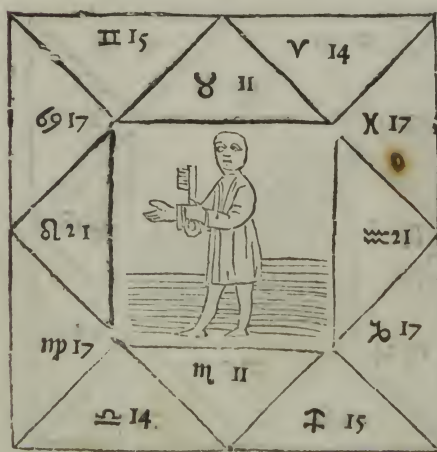 ♊ 15 ♈ 14
♉ 11
♋ 17 ♓ 17
♌ 21 ♒ 21
♍ 17 ♑ 17
♏ 11
♎ 14 ♐ 15